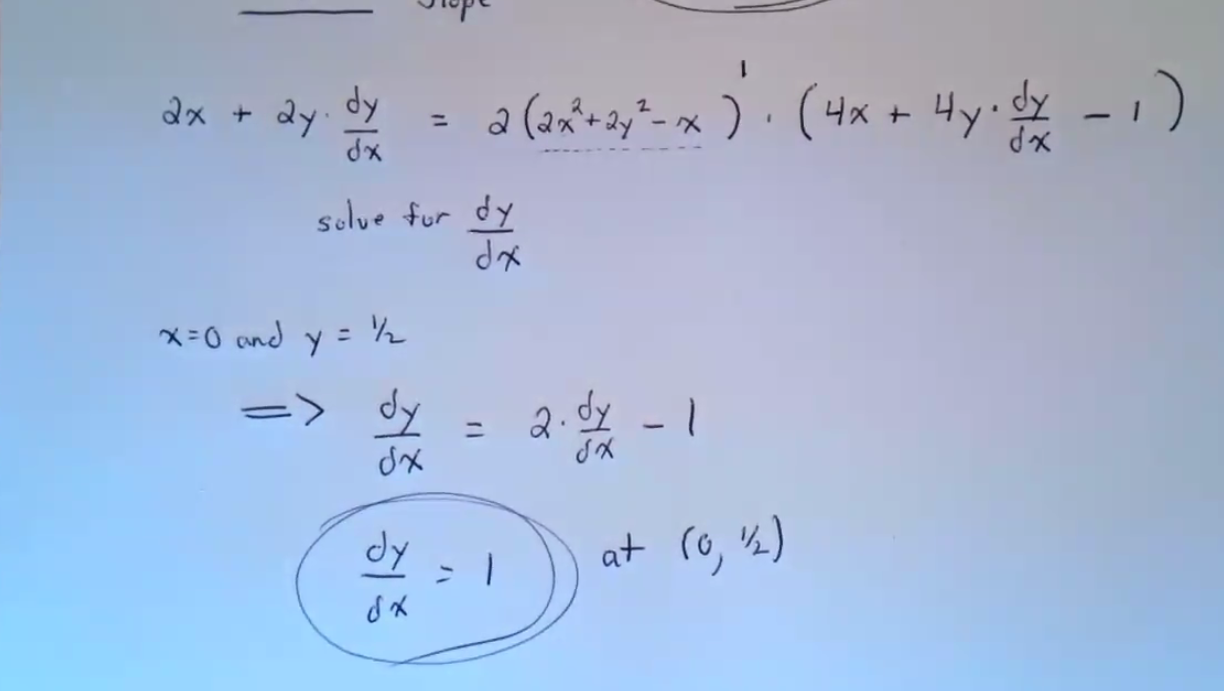 slope
2x + 2y · dy/dx = 2(2x² + 2y² - x)¹ · (4x + 4y · dy/dx - 1)
solve for dy/dx
x=0 and y = 1/2
=> dy/dx = 2 · dy/dx - 1
dy/dx = 1 at (0, 1/2)